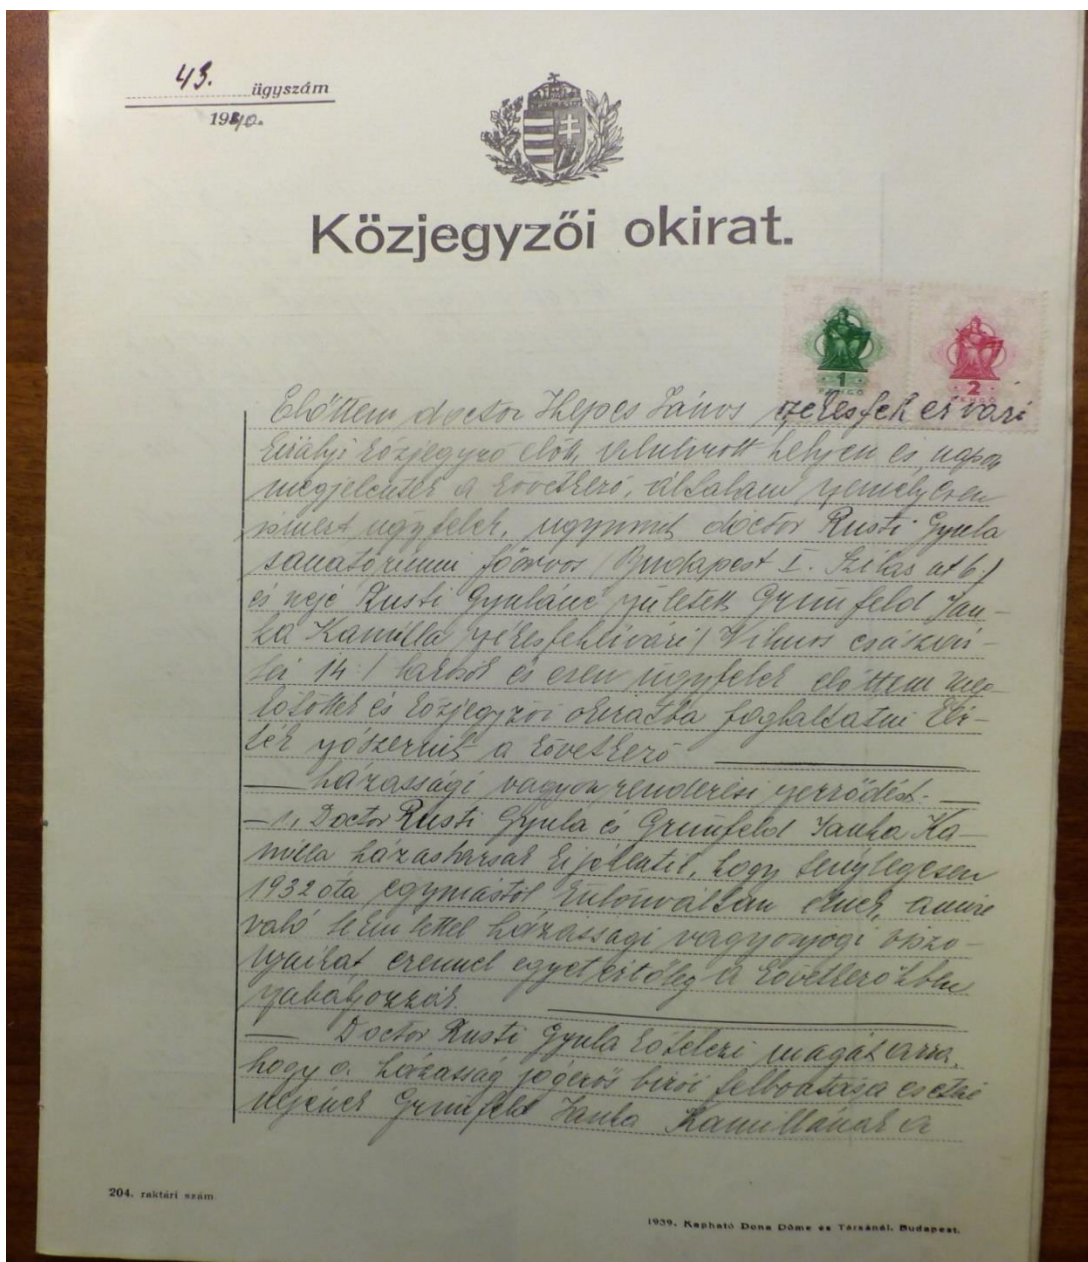 43. ügyszám
1940.
Közjegyzői okirat.
1
PENGŐ
2
PENGŐ
Előttem doctor János székesfehérvári
királyi közjegyző előtt, alulírott helyen és napon
megjelentek a következő, általam személyesen
ismert ügyfelek, úgymint doctor Rusti Gyula
sanatóriumi főorvos /Budapest I. Szilas ut 6./
és neje Rusti Gyuláné született Grünfeld Jan-
ka Kamilla székesfehérvári /Vilmos császár
14./ lakosok és ezen ügyfelek előttem meg-
kötöttek és közjegyzői okiratba foglaltatni kér-
tek a következő
házassági vagyonrendezési szerződést.
1., Doctor Rusti Gyula és Grünfeld Janka Ka-
milla házastársak kijelentik, hogy ténylegesen
1932 óta egymástól különváltan élnek, amire
való tekintettel házassági vagyonjogi viszo-
nyaikat ezennel egyetértőleg a következőkben
szabályozzák.
Doctor Rusti Gyula kötelezi magát arra,
hogy a házasság jogerős bírói felbontása esetén
nejének Grünfeld Janka Kamillának a
204. raktári szám.
1939. Kapható Dona Döme és Társánál, Budapest.